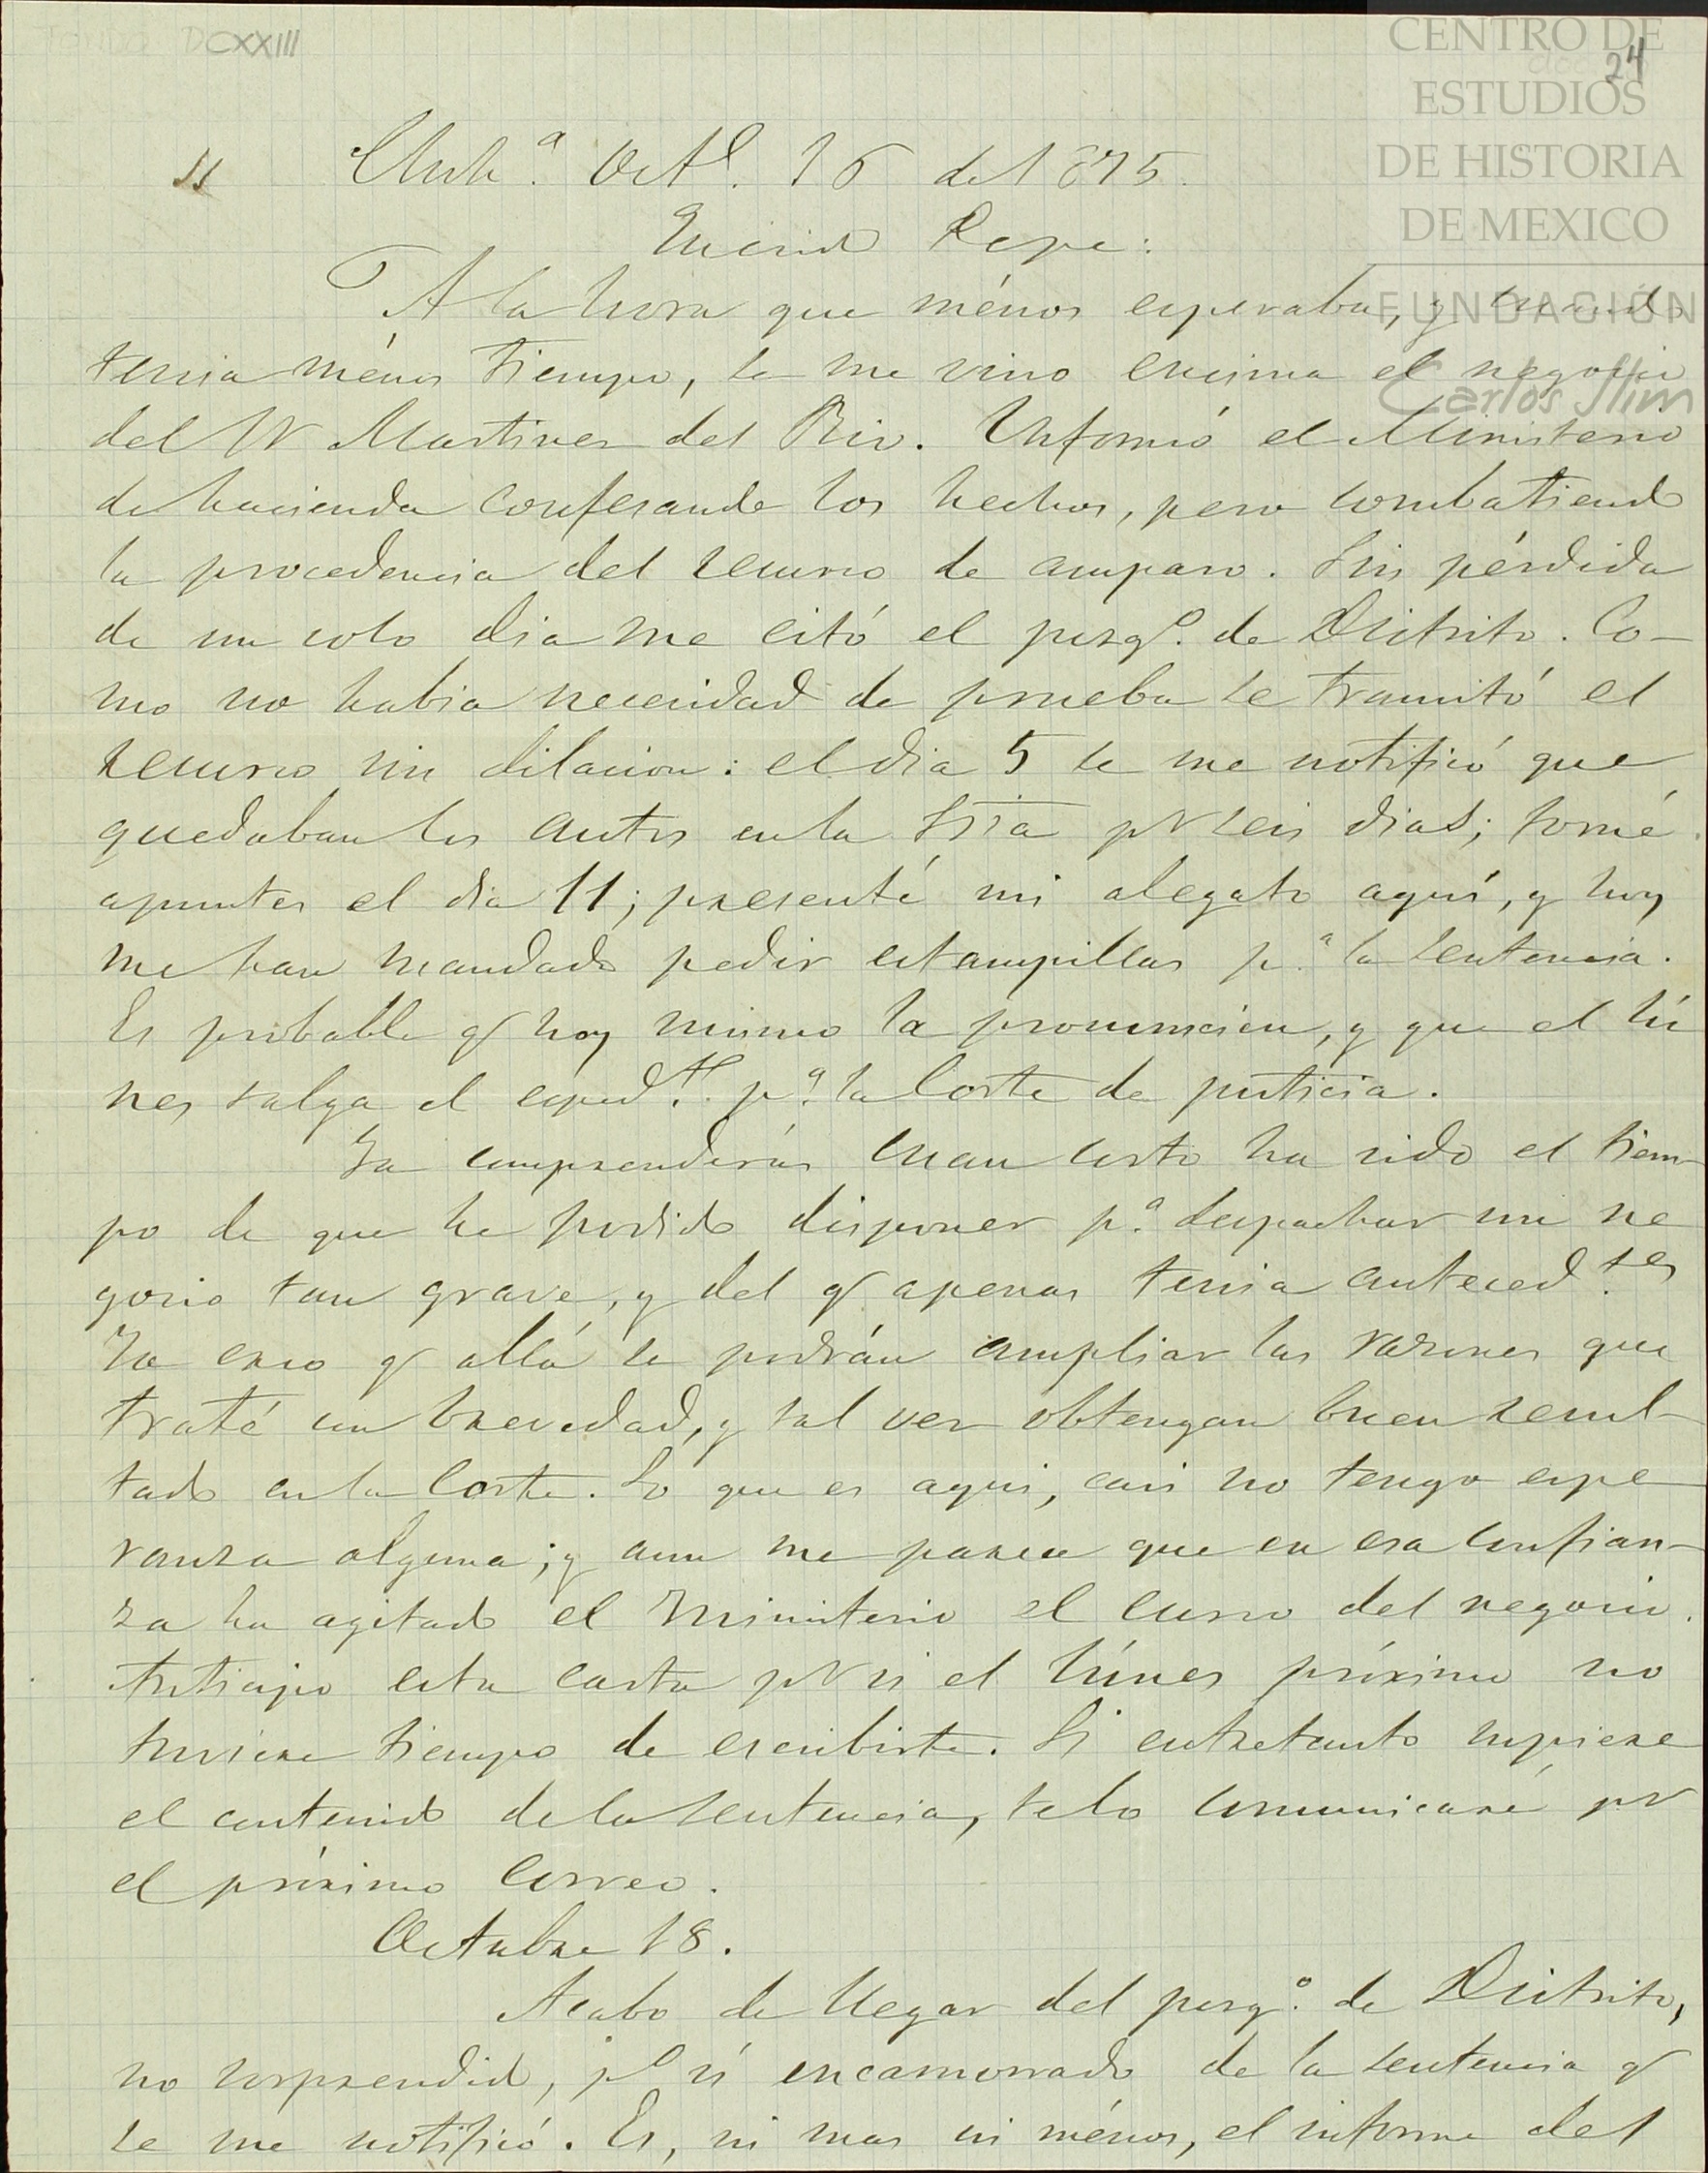 FONDO DCXXIII
CENTRO DE
ESTUDIOS
DE HISTORIA
DE MEXICO
FUNDACIÓN
Carlos Slim
24
Octe. 16 de 1875.
Querido Pepe:
A la hora que ménos esperaba, y cuando
tenia ménos tiempo, se me vino encima el negocio
del Sr Martinez del Rio. Informó el Ministerio
de hacienda confesando los hechos, pero combatiendo
la procedencia del recurso de amparo. Sin pérdida
de un solo dia me citó el juzgo. de Distrito. Co-
mo no habia necesidad de prueba se tramitó el
recurso sin dilacion: el dia 5 se me notificó que
quedaban los autos en la Sria pr seis dias; tomé
apuntes el dia 11; presenté mi alegato aquí, y hoy
me han mandado pedir estampillas pa. la sentencia.
Es probable q hoy mismo la pronuncien, y que el lú
nes salga el esped.te pa. la Corte de justicia.
Ya comprenderás cuan corto ha sido el tiem-
po de que he podido disponer pa. despachar un ne
gocio tan grave, y del q apenas tenia anteced.tes
Yo creo q allá se podrán ampliar las razones que
traté con brevedad, y tal vez obtengan buen resul-
tado en la Corte. Lo que es aqui, casi no tengo espe
ranza alguna; y aun me parece que en esa confian-
za ha agitado el Ministerio el curso del negocio.
Anticipo esta carta pr si el lúnes próximo no
tuviere tiempo de escribirte. Si entretanto supiere
el contenido de la sentencia, te lo comunicaré pr
el próximo correo.
Octubre 18.
Acabo de llegar del juzgo. de Distrito,
no sorprendido, po si encamorrado de la sentencia q
se me notificó. Es, ni mas ni ménos, el informe del